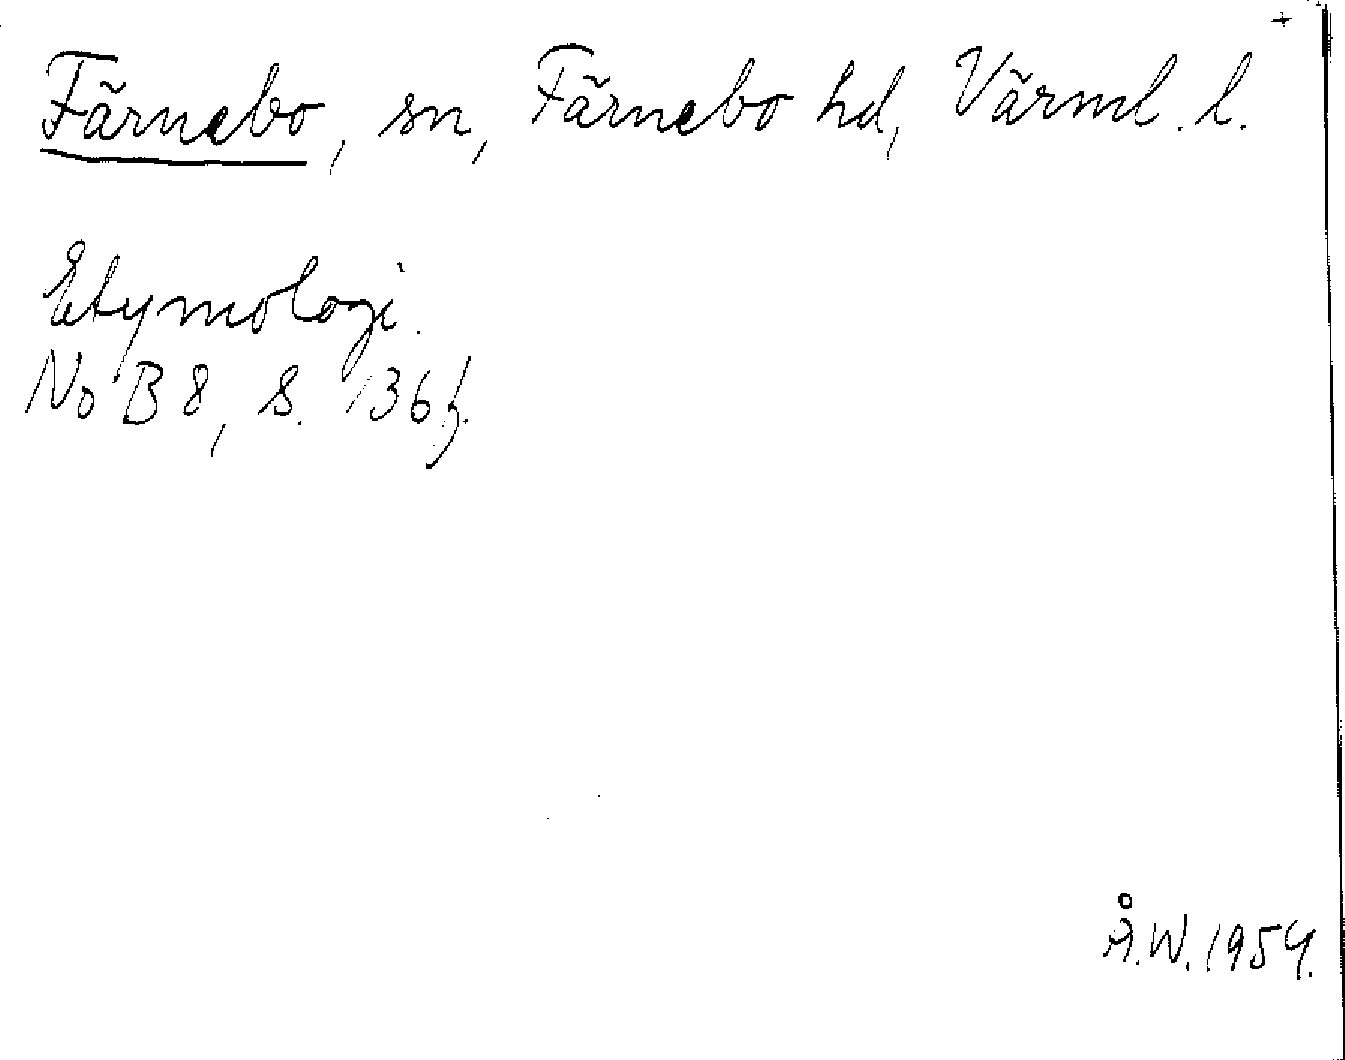 Färnebo, sn, Färnebo hd, Värml. l.
Etymologi.
NoB 8, s. 136 f.
Å.W. 1954.